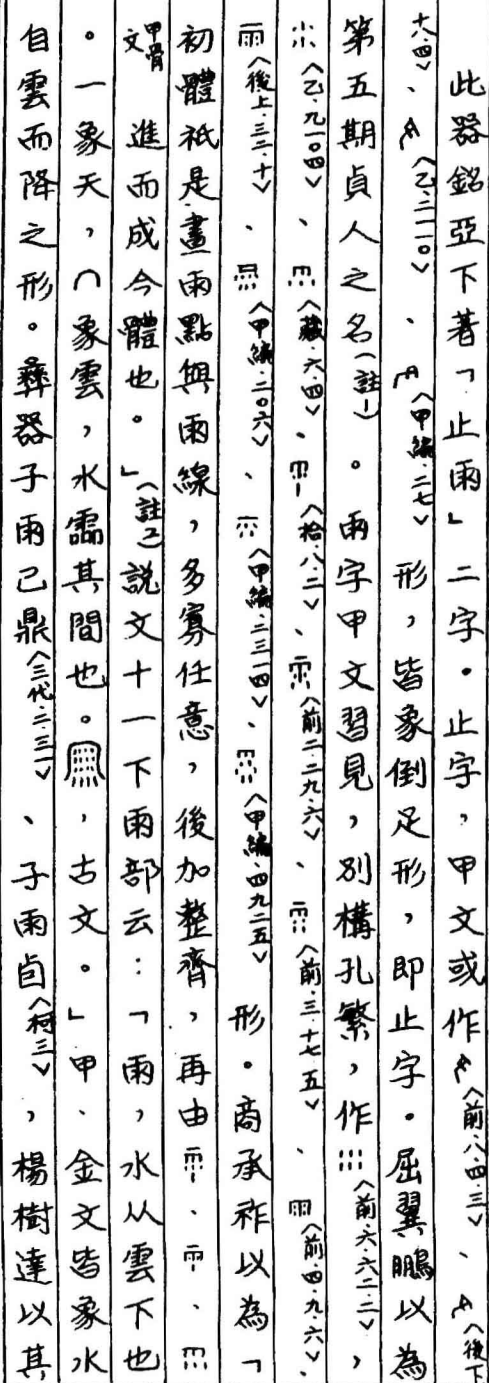 此器銘亞下著「止雨」二字。止字，甲文或作〈前．八．四．三〉、〈後下
十八．四〉、〈乙．二一一〇〉、〈甲編．二七〉形，皆象倒足形，即止字。屈翼鵬以為
第五期貞人之名（註1）。雨字甲文習見，別構孔繁，作〈前．六．六二．二〉，
〈乙．九一〇四〉、〈藏．六．四〉、〈拾．八．二〉、〈前二．二九．六〉、〈前．三．十七．五〉、〈前．四．九．六〉、
〈後上．三二．十〉、〈甲編．二〇六〉、〈甲編．二三一四〉、〈甲編．四九二五〉形。商承祚以為「
初體祇是畫雨點與雨線，多寡任意，後加整齊，再由、、
甲骨文進而成今體也。」（註2）說文十一下雨部云：「雨，水从雲下也
。一象天，冂象雲，水霝其間也。，古文。」甲、金文皆象水
自雲而降之形。彝器子雨己鼎〈三代．二．三一〉、子雨卣〈柯三〉，楊樹達以其